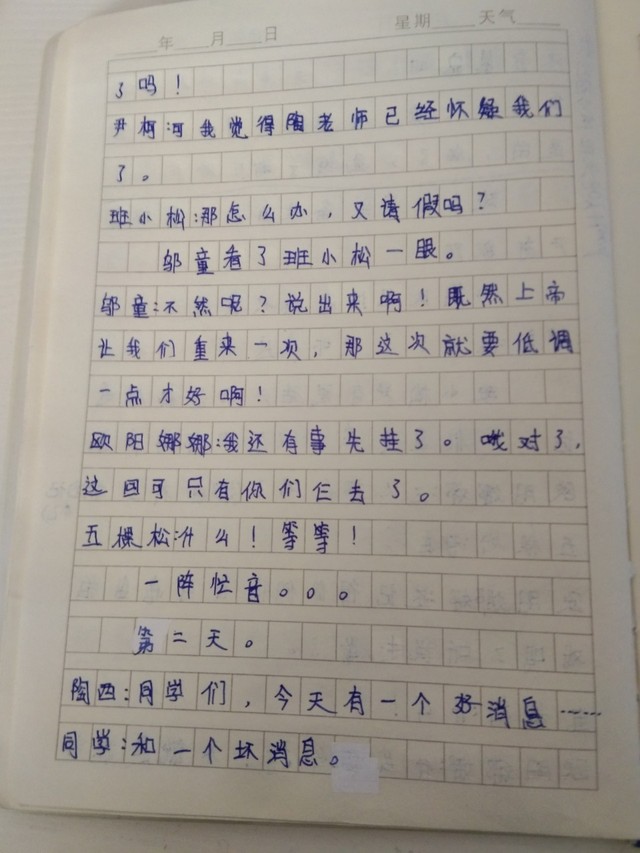 年 月 日 星期 天气
了吗！
尹柯:可我觉得陶老师已经怀疑我们
了。
班小松:那怎么办，又请假吗？
邬童看了班小松一眼。
邬童:不然呢？说出来啊！既然上帝
让我们重来一次，那这次就要低调
一点才好啊！
欧阳娜娜:我还有事先挂了。哦对了，
这回可只有你们仨去了。
五棵松:什么！等等！
一阵忙音。。。
第二天。
陶西:同学们，今天有一个好消息……
同学:和一个坏消息。